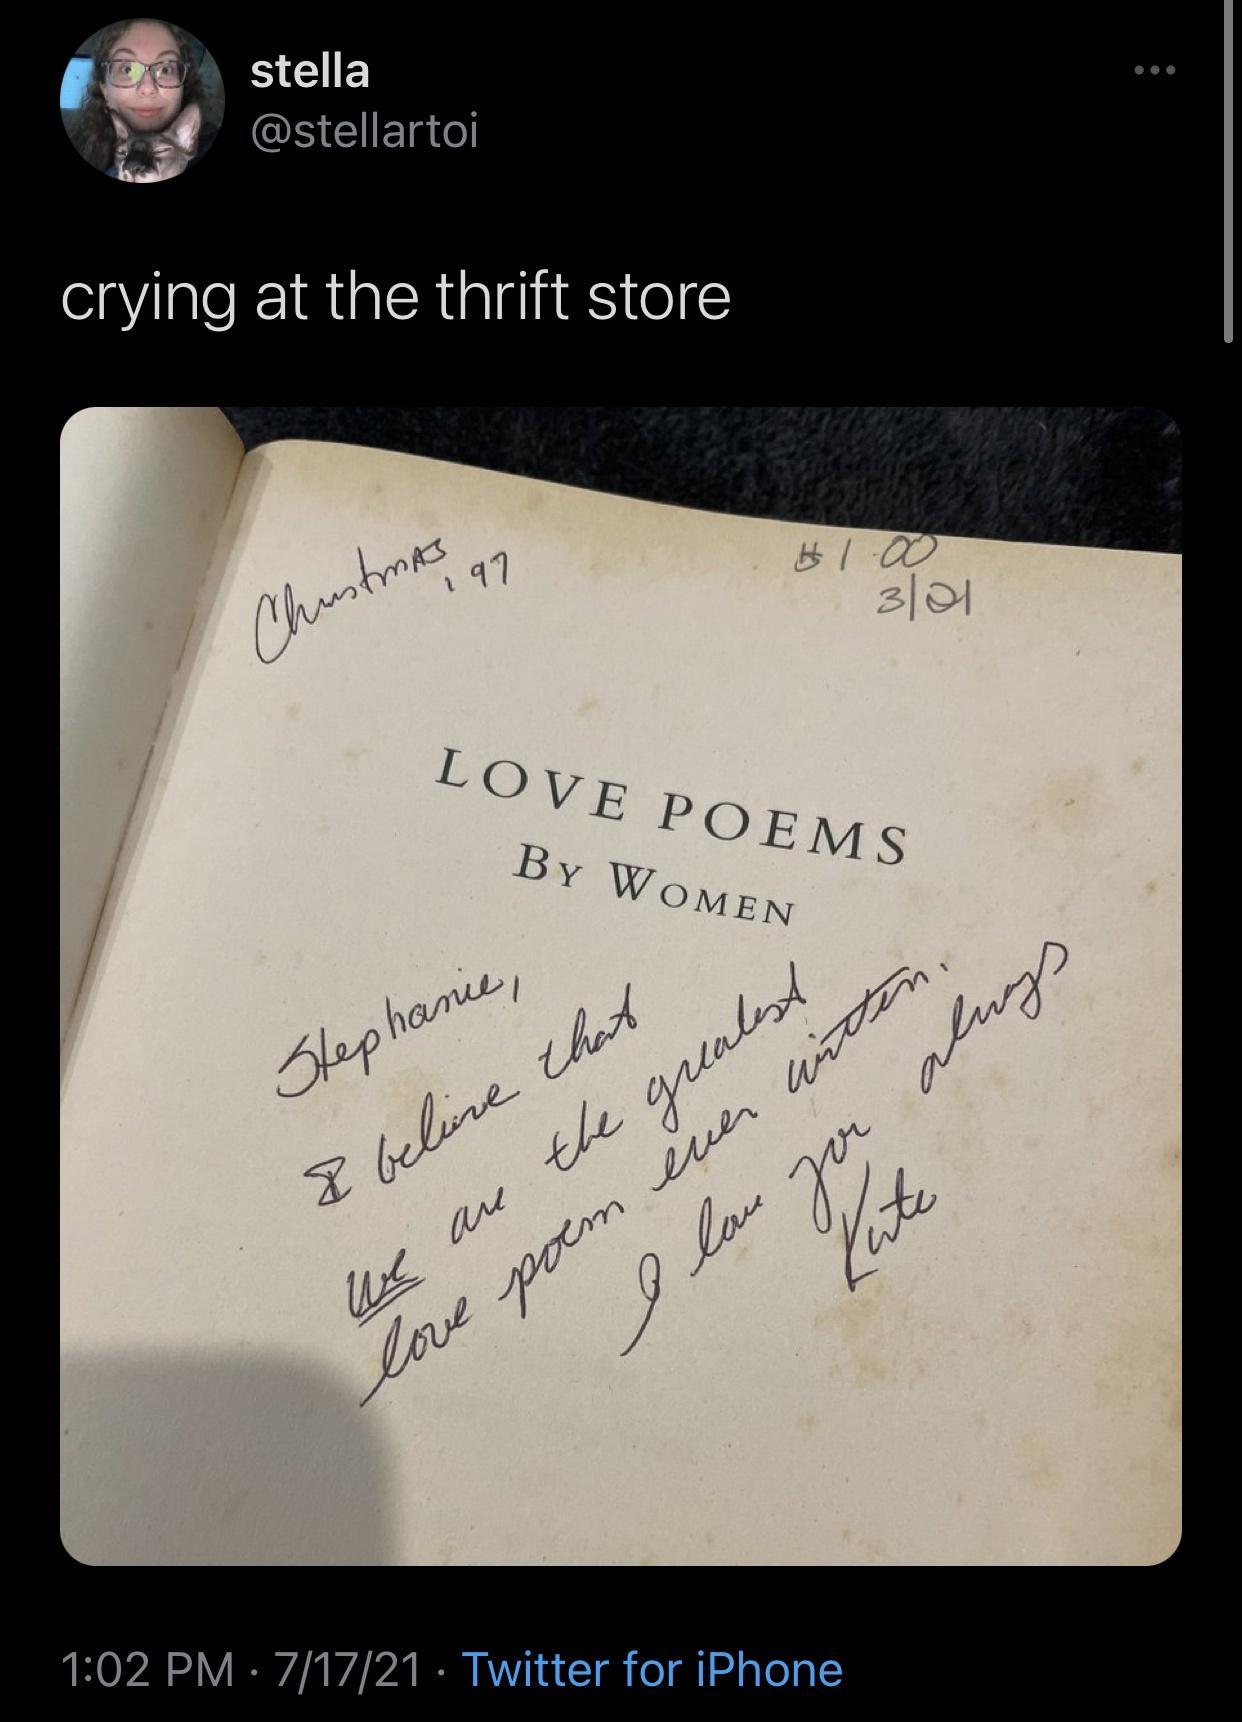 stella
@stellartoi
crying at the thrift store
Christmas
, 97
$1.00
3/21
LOVE POEMS
BY WOMEN
Stephanie,
I believe that
we are the greatest
love poem ever written.
I love you always
Kate
1:02 PM · 7/17/21 · Twitter for iPhone